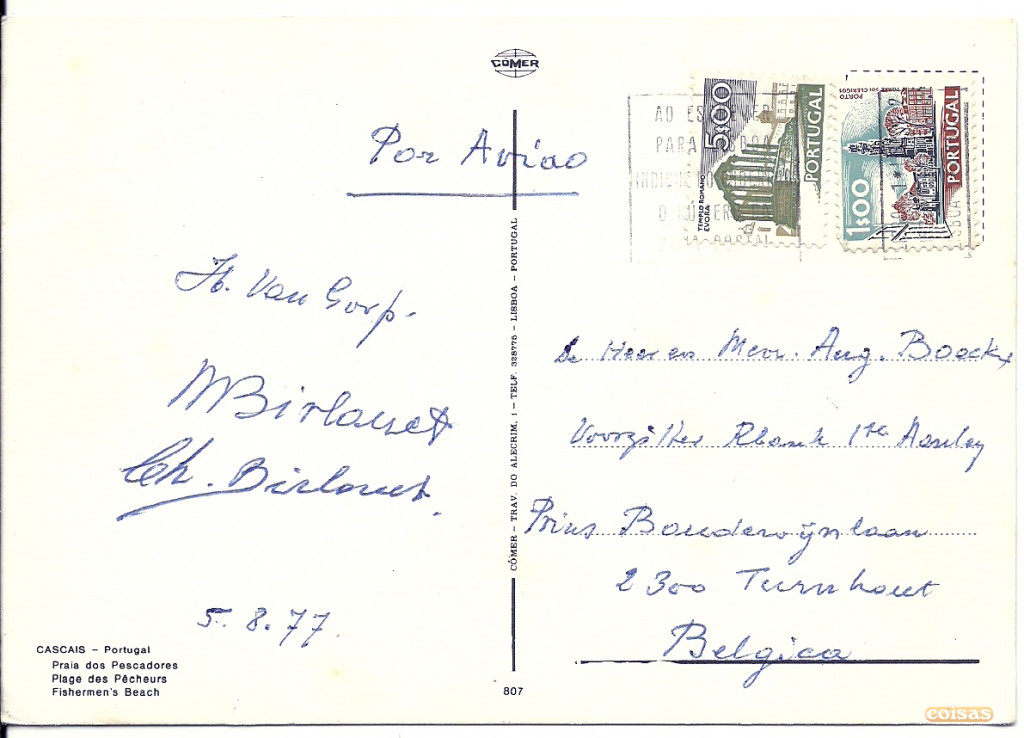 CÔMER
Por Aviao
AO ESCREVER
PARA LISBOA
INDIQUE
O NÚMERO
POSTAL
5$00
PORTUGAL
TEMPLO ROMANO
ÉVORA
1$00
PORTUGAL
PORTO TORRE DOS CLÉRIGOS
LISBOA
H. Van Gorp.
MBirlouet
Ch. Birlouet.
5.8.77.
De Heer en Mevr. Aug. Boeckx
Voorzitter Rbank 1ste Aanleg
Prins Boudewijnlaan
2300 Turnhout
Belgica
CÔMER – TRAV. DO ALECRIM, 1 – TELF. 328775 – LISBOA – PORTUGAL
CASCAIS – Portugal
Praia dos Pescadores
Plage des Pêcheurs
Fishermen's Beach
807
coisas